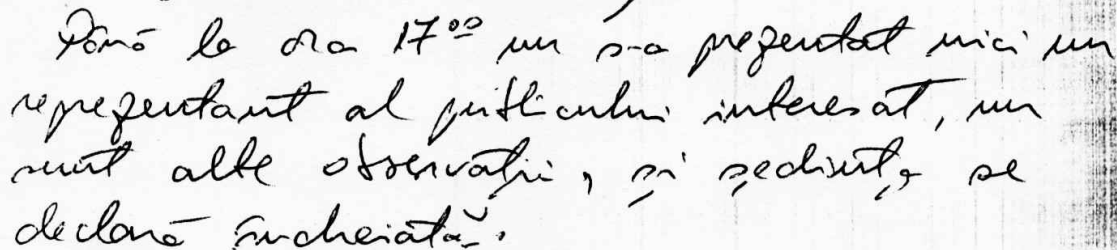 Până la ora 17⁰⁰ nu s-a prezentat nici un
reprezentant al publicului interesat, nu
sunt alte observații, și ședința se
declară încheiată.